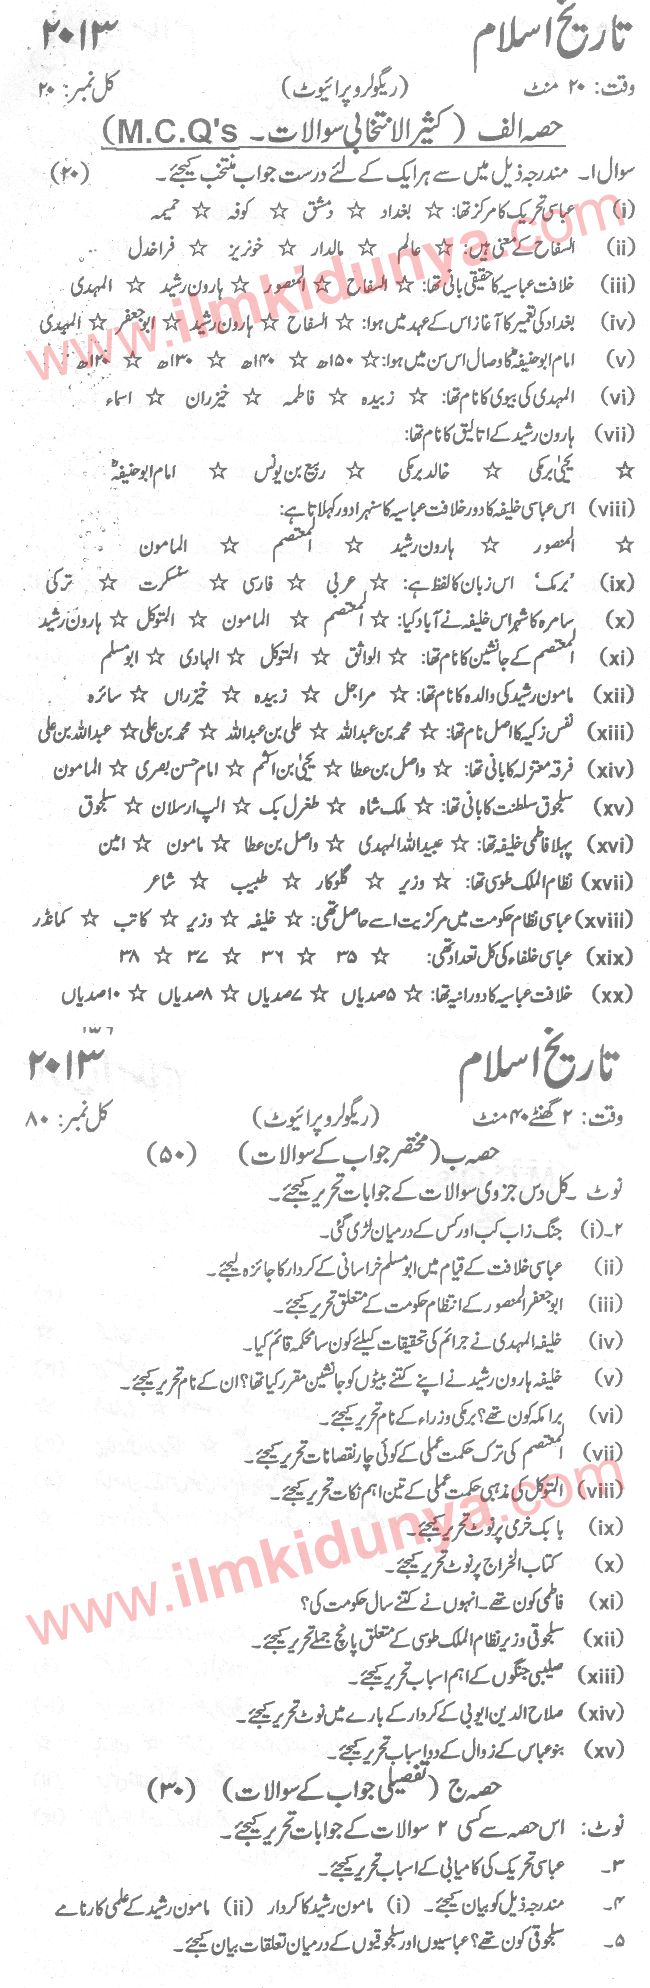 تاریخ اسلام ۲۰۱۳
وقت: ۲۰ منٹ (ریگولر و پرائیوٹ) کل نمبر: ۲۰
حصہ الف (کثیر الانتخابی سوالات ۔ M.C.Q's)
سوال۱۔ مندرجہ ذیل میں سے ہر ایک کے لئے درست جواب منتخب کیجئے۔ (۲۰)
(i) عباسی تحریک کا مرکز تھا: ☆ بغداد ☆ دمشق ☆ کوفہ ☆ حمیمہ
(ii) السفاح کے معنی ہیں: ☆ عالم ☆ مالدار ☆ خونریز ☆ فراخدل
(iii) خلافت عباسیہ کا حقیقی بانی تھا: ☆ السفاح ☆ المنصور ☆ ہارون رشید ☆ المہدی
(iv) بغداد کی تعمیر کا آغاز اس کے عہد میں ہوا: ☆ السفاح ☆ ہارون رشید ☆ ابو جعفر ☆ المہدی
(v) امام ابو حنیفہؒ کا وصال اس سن میں ہوا: ☆ ۱۵۰ھ ☆ ۱۴۰ھ ☆ ۱۳۰ھ ☆ ۱۲۰ھ
(vi) المہدی کی بیوی کا نام تھا: ☆ زبیدہ ☆ فاطمہ ☆ خیزران ☆ اسماء
(vii) ہارون رشید کے اتالیق کا نام تھا:
☆ یحییٰ برمکی ☆ خالد برمکی ☆ ربیع بن یونس ☆ امام ابو حنیفہؒ
(viii) اس عباسی خلیفہ کا دور خلافت عباسیہ کا سنہرا دور کہلاتا ہے:
☆ المنصور ☆ ہارون رشید ☆ المعتصم ☆ المامون
(ix) ’برمک‘ اس زبان کا لفظ ہے: ☆ عربی ☆ فارسی ☆ سنسکرت ☆ ترکی
(x) سامرہ کا شہر اس خلیفہ نے آباد کیا: ☆ المعتصم ☆ المامون ☆ المتوکل ☆ ہارون رشید
(xi) المعتصم کے جانشین کا نام تھا: ☆ الواثق ☆ المتوکل ☆ الہادی ☆ ابو مسلم
(xii) مامون رشید کی والدہ کا نام تھا: ☆ مراجل ☆ زبیدہ ☆ خیزراں ☆ سائرہ
(xiii) نفس زکیہ کا اصل نام تھا: ☆ محمد بن عبداللہ ☆ علی بن عبداللہ ☆ محمد بن علی ☆ عبداللہ بن علی
(xiv) فرقہ معتزلہ کا بانی تھا: ☆ واصل بن عطا ☆ یحییٰ بن اکثم ☆ امام حسن بصری ☆ المامون
(xv) سلجوق سلطنت کا بانی تھا: ☆ ملک شاہ ☆ طغرل بک ☆ الپ ارسلان ☆ سلجوق
(xvi) پہلا فاطمی خلیفہ تھا: ☆ عبیداللہ المہدی ☆ واصل بن عطا ☆ مامون ☆ امین
(xvii) نظام الملک طوسی تھا: ☆ وزیر ☆ گلوکار ☆ طبیب ☆ شاعر
(xviii) عباسی نظام حکومت میں مرکزیت اسے حاصل تھی: ☆ خلیفہ ☆ وزیر ☆ کاتب ☆ کمانڈر
(xix) عباسی خلفاء کی کل تعداد تھی: ☆ ۳۵ ☆ ۳۶ ☆ ۳۷ ☆ ۳۸
(xx) خلافت عباسیہ کا دورانیہ تھا: ☆ ۵ صدیاں ☆ ۷ صدیاں ☆ ۸ صدیاں ☆ ۱۰ صدیاں
تاریخ اسلام ۲۰۱۳
وقت: ۲ گھنٹے ۴۰ منٹ (ریگولر و پرائیوٹ) کل نمبر: ۸۰
حصہ ب (مختصر جواب کے سوالات) (۵۰)
نوٹ ۔ کل دس جزوی سوالات کے جوابات تحریر کیجئے۔
۲۔(i) جنگ زاب کب اور کس کے درمیان لڑی گئی۔
(ii) عباسی خلافت کے قیام میں ابو مسلم خراسانی کے کردار کا جائزہ لیجئے۔
(iii) ابو جعفر المنصور کے انتظام حکومت کے متعلق تحریر کیجئے۔
(iv) خلیفہ المہدی نے جرائم کی تحقیقات کیلئے کون سا محکمہ قائم کیا۔
(v) خلیفہ ہارون رشید نے اپنے کتنے بیٹوں کو جانشین مقرر کیا تھا؟ ان کے نام تحریر کیجئے۔
(vi) برامکہ کون تھے؟ برمکی وزراء کے نام تحریر کیجئے۔
(vii) المعتصم کی ترک حکمت عملی کے کوئی چار نقصانات تحریر کیجئے۔
(viii) المتوکل کی مذہبی حکمت عملی کے تین اہم نکات تحریر کیجئے۔
(ix) بابک خرمی پر نوٹ تحریر کیجئے۔
(x) کتاب الخراج پر نوٹ تحریر کیجئے۔
(xi) فاطمی کون تھے۔ انہوں نے کتنے سال حکومت کی؟
(xii) سلجوقی وزیر نظام الملک طوسی کے متعلق پانچ جملے تحریر کیجئے۔
(xiii) صلیبی جنگوں کے اہم اسباب تحریر کیجئے۔
(xiv) صلاح الدین ایوبی کے کردار کے بارے میں نوٹ تحریر کیجئے۔
(xv) بنو عباس کے زوال کے دو اسباب تحریر کیجئے۔
حصہ ج (تفصیلی جواب کے سوالات) (۳۰)
نوٹ: اس حصہ سے کسی ۲ سوالات کے جوابات تحریر کیجئے۔
۳۔ عباسی تحریک کی کامیابی کے اسباب تحریر کیجئے۔
۴۔ مندرجہ ذیل کو بیان کیجئے۔ (i) مامون رشید کا کردار (ii) مامون رشید کے علمی کارنامے
۵۔ سلجوقی کون تھے؟ عباسیوں اور سلجوقیوں کے درمیان تعلقات بیان کیجئے۔
www.ilmkidunya.com
www.ilmkidunya.com